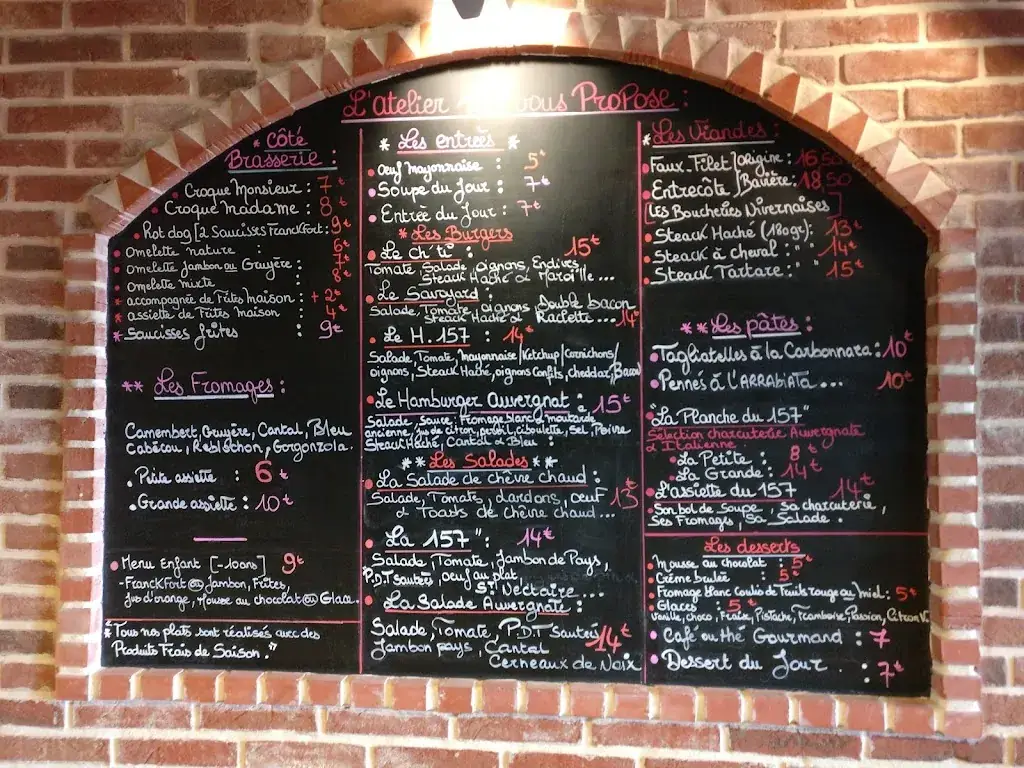 L'atelier vous Propose :
* Côté
Brasserie :
Croque Monsieur : 7€
Croque Madame : 8€
Hot dog [2 Saucisses Franckfort : 9€
Omelette nature : 6€
Omelette Jambon ou Gruyère : 7€
Omelette mixte 8€
* accompagnée de Frites Maison : + 2€
* assiette de Frites Maison : 4€
* Saucisses frites : 9€
** Les Fromages :
Camembert, Gruyère, Cantal, Bleu
Cabécou, Reblochon, Gorgonzola.
Petite assiette : 6€
Grande assiette : 10€
Menu Enfant [-10ans] 9€
- FranckFort ou Jambon, Frites,
Jus d'orange, Mousse au chocolat ou Glace.
* "Tous nos plats sont réalisés avec des
Produits Frais de Saison :"
* Les entrées *
Oeuf Mayonnaise : 5€
Soupe du Jour : 7€
Entrée du Jour : 7€
* Les Burgers
Le ch'ti : 15€
Tomate, Salade, oignons, Endives
Steack Haché & Maroille...
Le Savoyard :
Salade, Tomate, oignons Double bacon
Steack Haché & Raclette... 14€
Le H. 157 : 14€
Salade, Tomate, Mayonnaise/Ketchup/Cornichons/
oignons, Steack Haché, oignons Confits, cheddar, Bacon
Le Hamburger Auvergnat : 15€
Salade, Sauce : Fromage blanc & moutarde
ancienne, Jus de citron, persil, ciboulette, Sel, Poivre
Steack Haché, Cantal & Bleu :
** Les Salades **
La Salade de chèvre chaud :
Salade, Tomate, Lardons, oeuf 13€
& Toasts de chèvre chaud...
La 157" : 14€
Salade, Tomate, Jambon de Pays,
P.D.T sautées, oeuf au plat
St Nectaire...
La Salade Auvergnate :
Salade, Tomate, P.D.T Sautées 14€
Jambon pays, Cantal
Cerneaux de Noix
* Les Viandes :
Faux-Filet [origine : 16,50
Entrecôte [Bavière : 18,50
[Les Boucheries Nivernaises]
Steack Haché (180gr) : 13€
Steack à cheval : " 14€
Steack Tartare : " " 15€
** Les pâtes :
Tagliatelles à la Carbonnara : 10€
Pennés à L'ARRABIATA ... 10€
"La Planche du 157"
Sélection charcuterie Auvergnate
& Italienne :
La Petite : 8€
La Grande : 14€
L'assiette du 157 14€
Son bol de Soupe, Sa charcuterie,
Ses Fromages, Sa Salade.
Les desserts
Mousse au chocolat : 5€
Crème brulée : 5€
Fromage blanc Coulis de Fruits rouge ou Miel : 5€
Glaces : 5€
Vanille, choco, Fraise, Pistache, Framboise, Passion, Citron V.
Café ou thé Gourmand : 7
Dessert du Jour : 7€